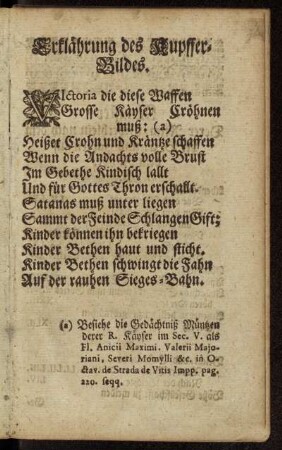 Erklährung des Kupffer-
Bildes.
VIctoria die diese Waffen
Grosse Käyser Cröhnen
muß: (a)
Heißet Crohn und Kräntze schaffen
Wenn die Andachts volle Brust
Im Gebethe Kindisch lallt
Und für Gottes Thron erschallt.
Satanas muß unter liegen
Sammt der Feinde Schlangen Gift;
Kinder können ihn bekriegen
Kinder Bethen haut und sticht.
Kinder Bethen schwingt die Fahn
Auf der rauhen Sieges-Bahn.
(a) Besiehe die Gedächtniß Müntzen
derer R. Käyser im Sec. V. als
Fl. Anicii Maximi. Valerii Majo-
riani, Severi Momylli &c. in O-
ctav. de Strada de Vitis Impp. pag.
220. seqq.